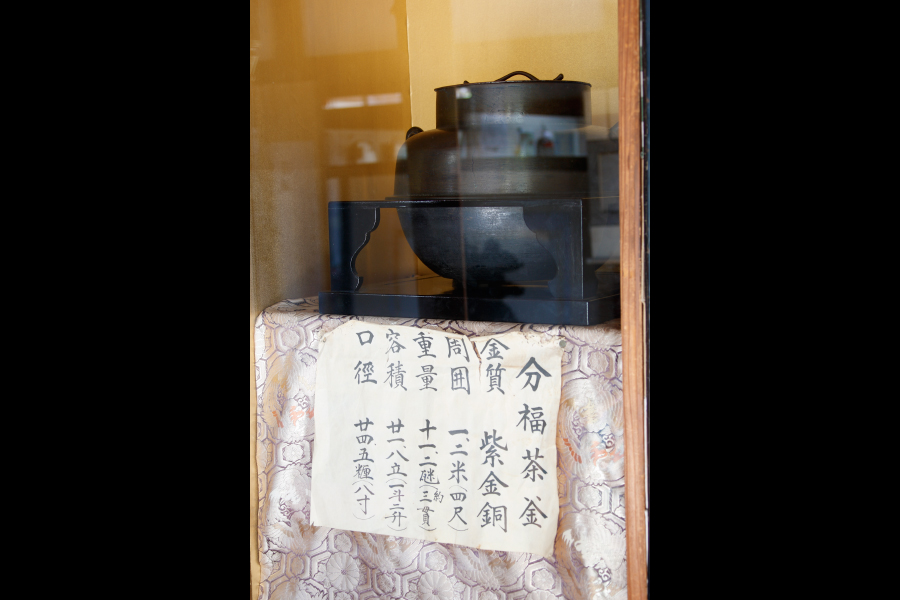 分福茶釜
金質 紫金銅
周囲 一、二米(四尺)
重量 十一、二瓩(約三貫)
容積 廿一、八立(一斗二升)
口徑 廿四、五糎(八寸)